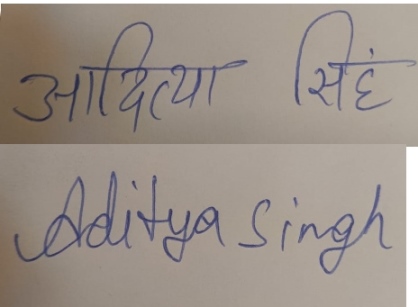 आदित्या सिहं
Aditya Singh